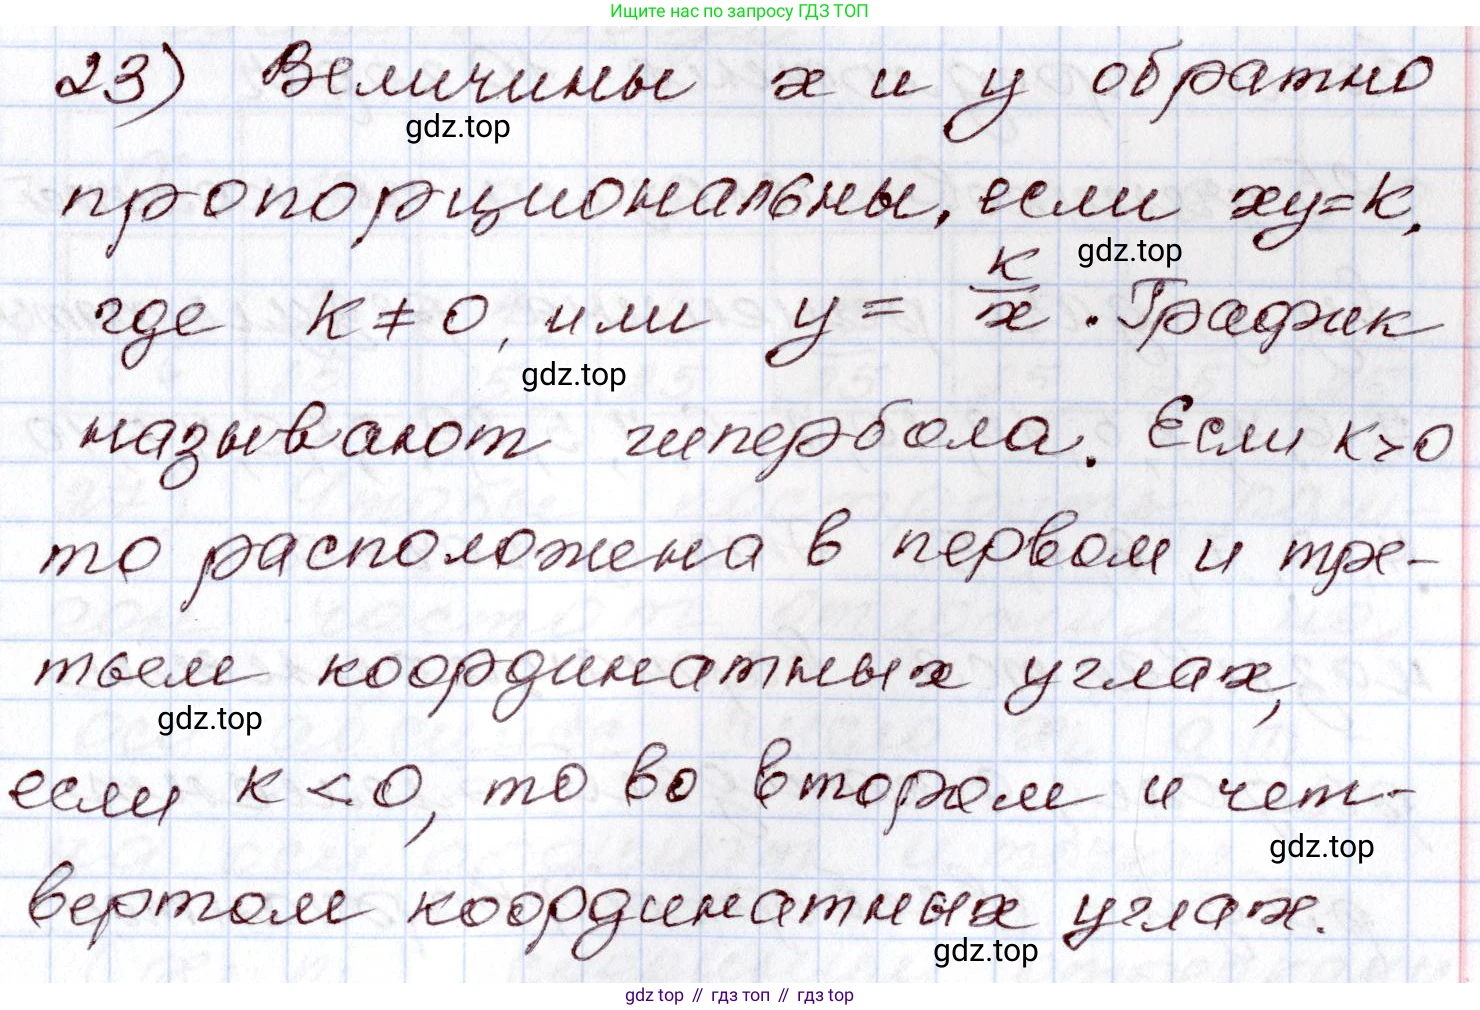 Ищите нас по запросу ГДЗ ТОП
23) Величины x и y обратно
gdz.top
пропорциональны, если xy=k,
gdz.top
где k≠0, или y = k/x. График
gdz.top
называют гипербола. Если k>0
то расположена в первом и тре-
тьем координатных углах,
gdz.top
если k<0, то во втором и чет-
gdz.top
вертом координатных углах.
gdz.top
gdz top // гдз топ // гдз top